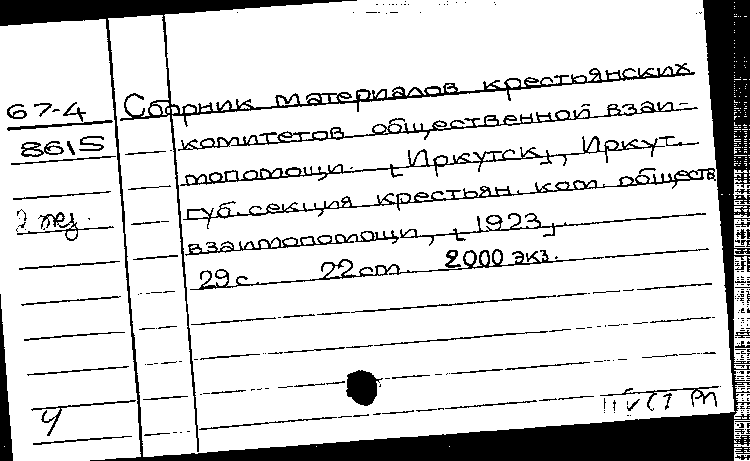 67-4
8615
2 экз.
Сборник материалов крестьянских
комитетов общественной взаи-
мопомощи. [Иркутск], Иркут.
губ. секция крестьян. ком. обществ
взаимопомощи, [1923].
29 с. 22 см. 2000 экз.
Ч